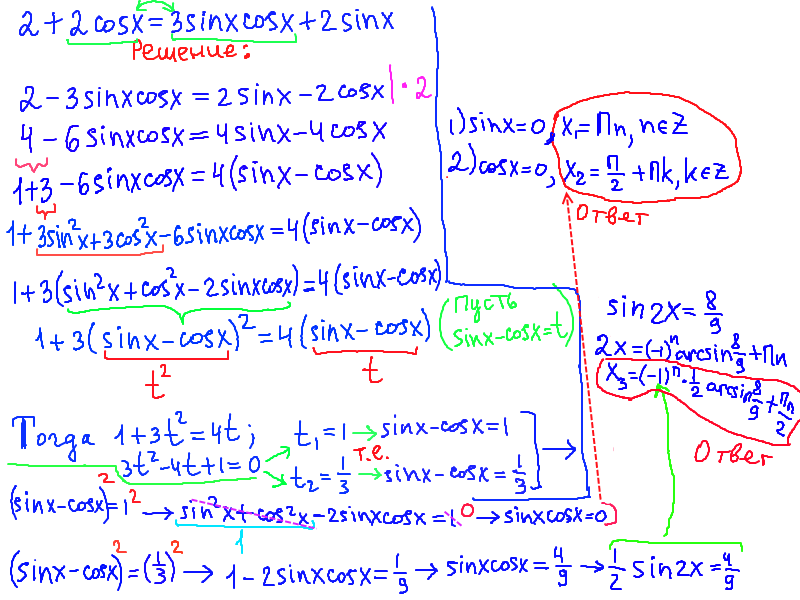 2 + 2cosx = 3sinxcosx + 2sinx
Решение:
2 - 3sinxcosx = 2sinx - 2cosx | · 2
4 - 6sinxcosx = 4sinx - 4cosx
1+3 - 6sinxcosx = 4(sinx - cosx)
1 + 3sin²x + 3cos²x - 6sinxcosx = 4(sinx - cosx)
1 + 3(sin²x + cos²x - 2sinxcosx) = 4(sinx - cosx)
1 + 3(sinx - cosx)² = 4(sinx - cosx)
(Пусть
sinx - cosx = t)
t²
t
Тогда 1 + 3t² = 4t;
3t² - 4t + 1 = 0
t₁ = 1 → sinx - cosx = 1
т.е.
t₂ = 1/3 → sinx - cosx = 1/3 →
(sinx - cosx)² = 1² → sin²x + cos²x - 2sinxcosx = 1 0 → sinxcosx = 0
1
(sinx - cosx)² = (1/3)² → 1 - 2sinxcosx = 1/9 → sinxcosx = 4/9 → 1/2 sin2x = 4/9
1) sinx = 0, x₁ = Πn, n∈Z
2) cosx = 0, x₂ = Π/2 + Πk, k∈Z
Ответ
sin2x = 8/9
2x = (-1)ⁿ arcsin 8/9 + Πn
x₃ = (-1)ⁿ · 1/2 arcsin 8/9 + Πn/2
Ответ